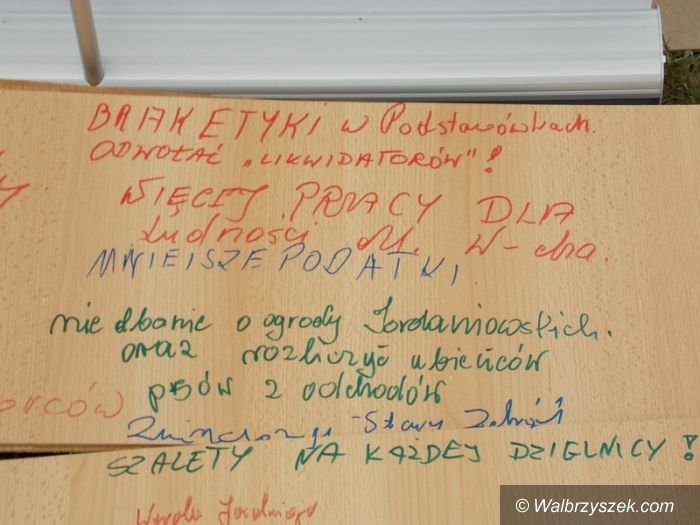 BRAK ETYKI w Podstawówkach.
ODWOŁAĆ „LIKWIDATORÓW"!
WIĘCEJ PRACY DLA
Ludności M. W-cha.
MNIEJSZE PODATKI
nie dbanie o ogrody Jordanowskich.
oraz rozliczyć
psów z odchodów
orców
Stawu
SZALETY NA KAŻDEJ DZIELNICY!
© Walbrzyszek.com